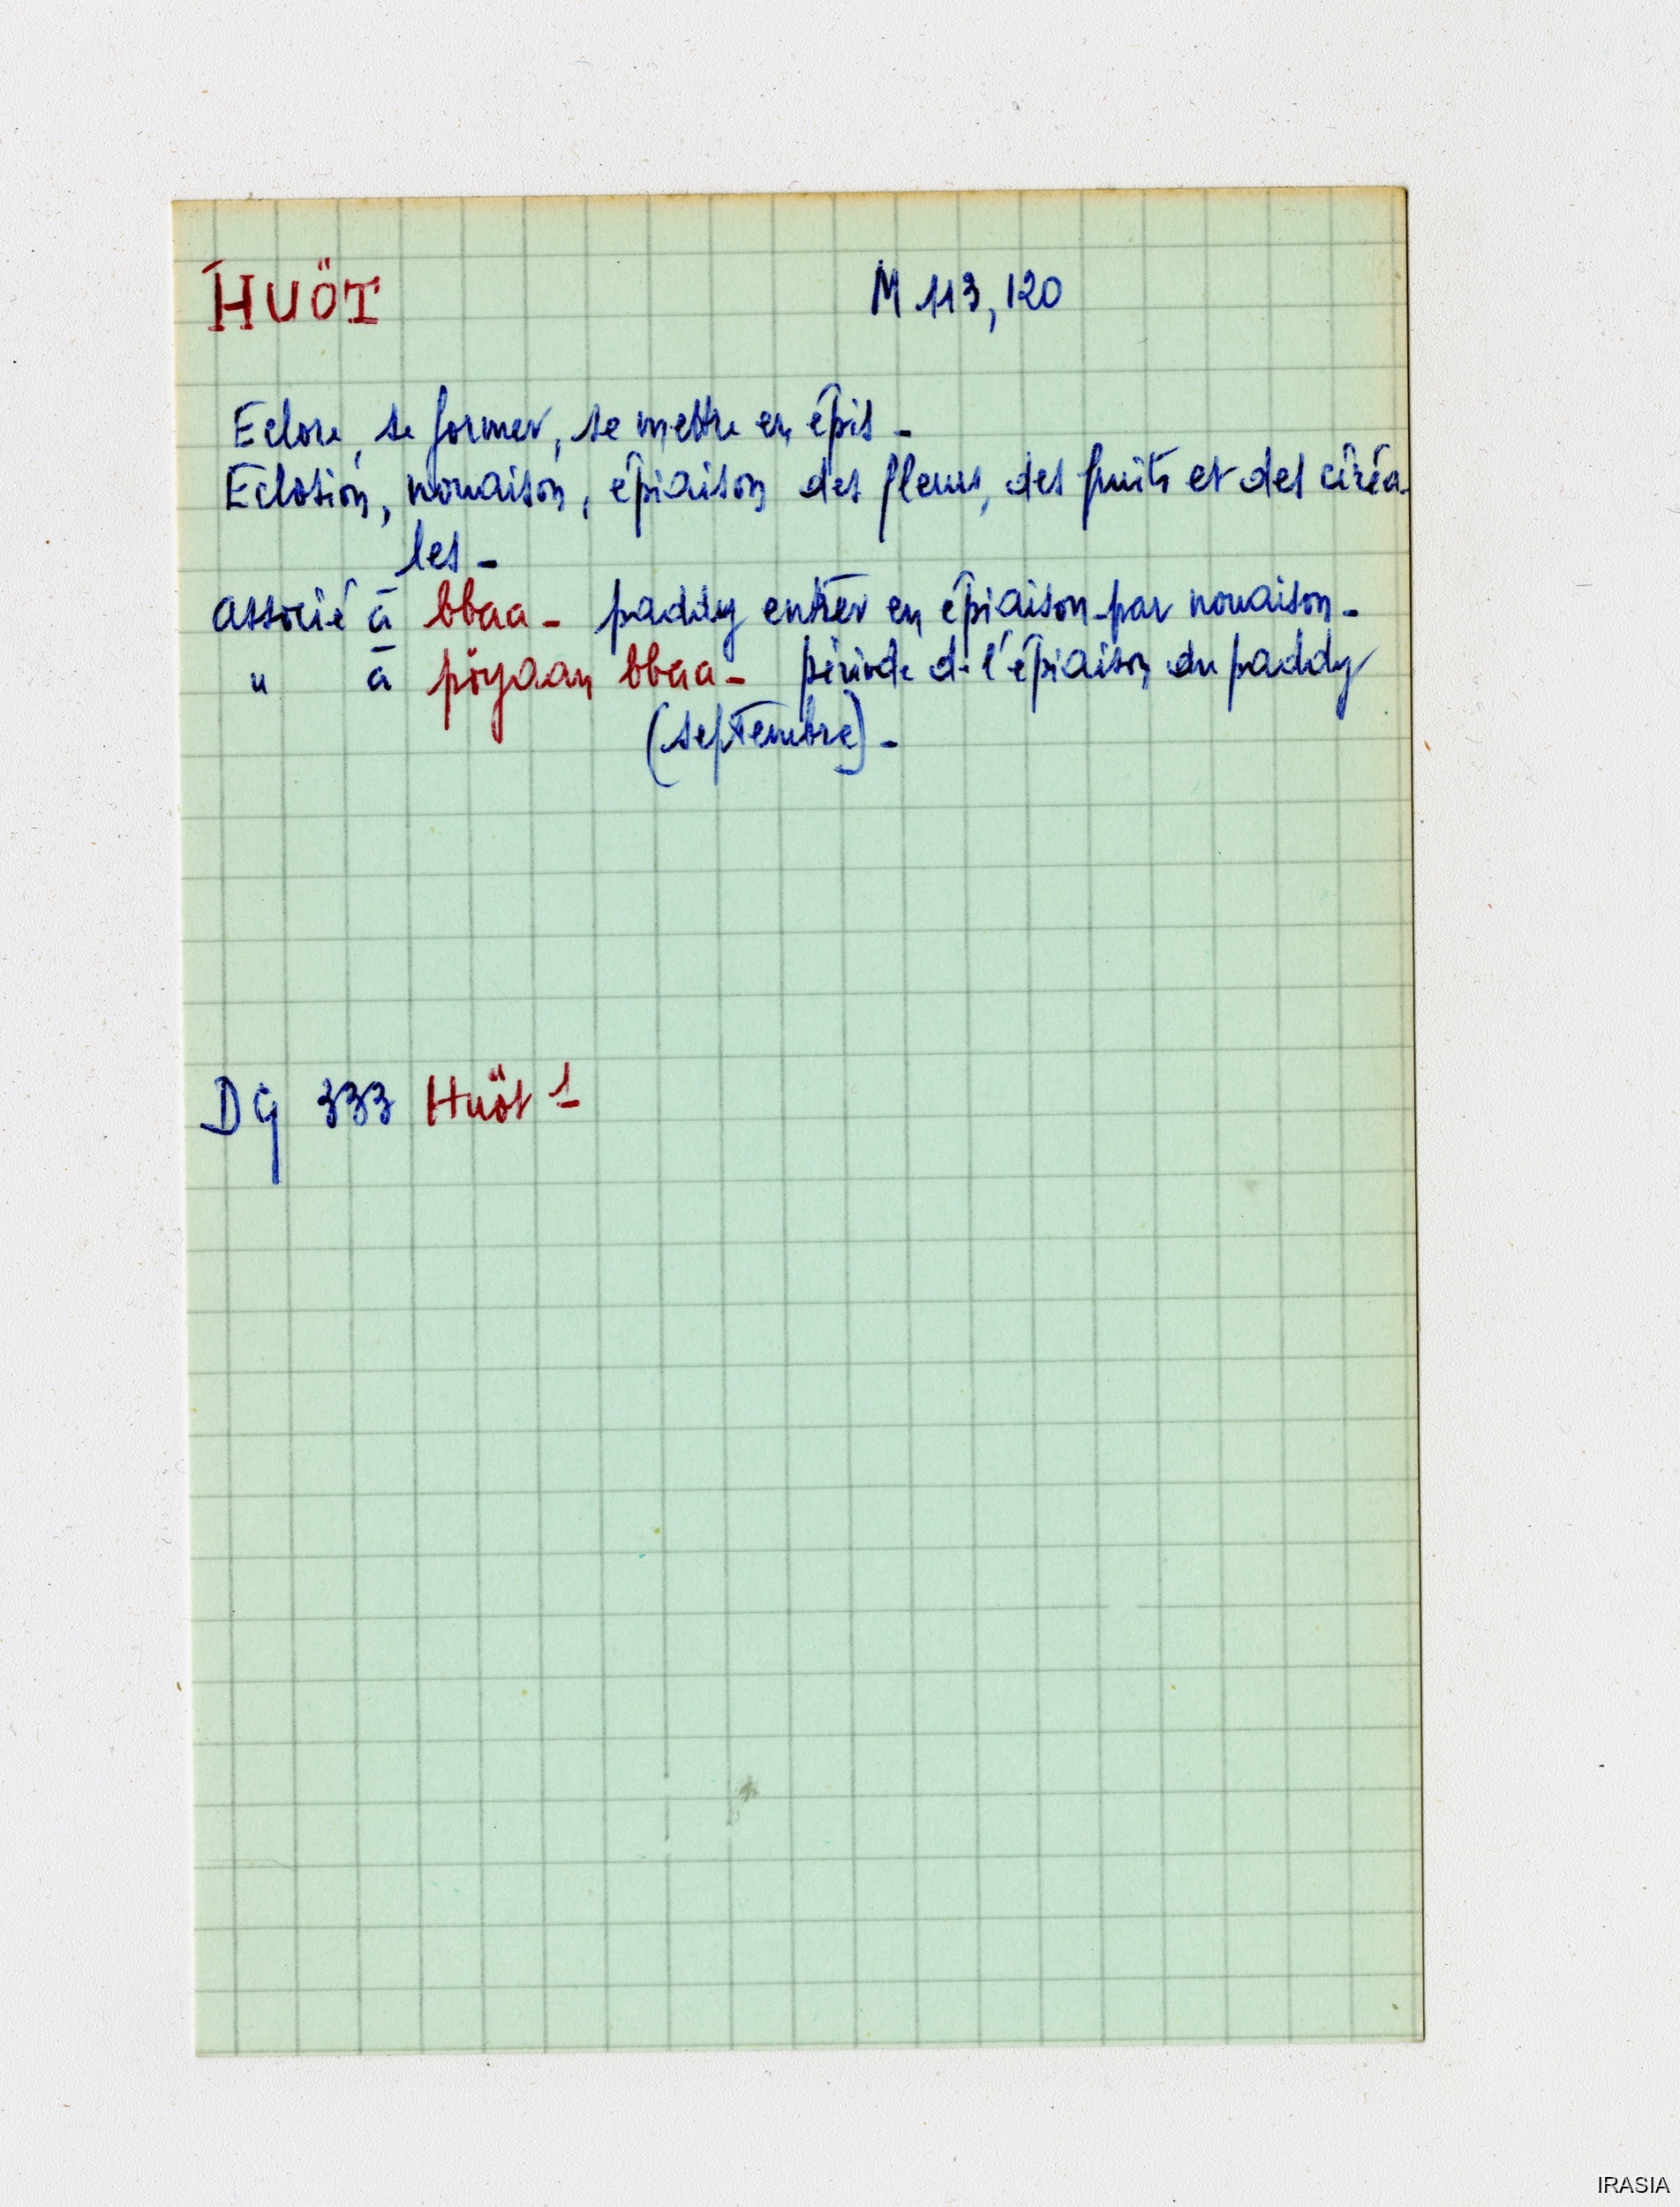 HUÖT M 113, 120
Eclore, se former, se mettre en épis -
Eclosion, nouaison, épiaison des fleurs, des fruits et des céréa-
les -
associé à bbaa - paddy entrer en épiaison par nouaison -
" à pöyaan bbaa - période de l'épiaison du paddy
(septembre) -
DG 333 Huöt 1
IRASIA